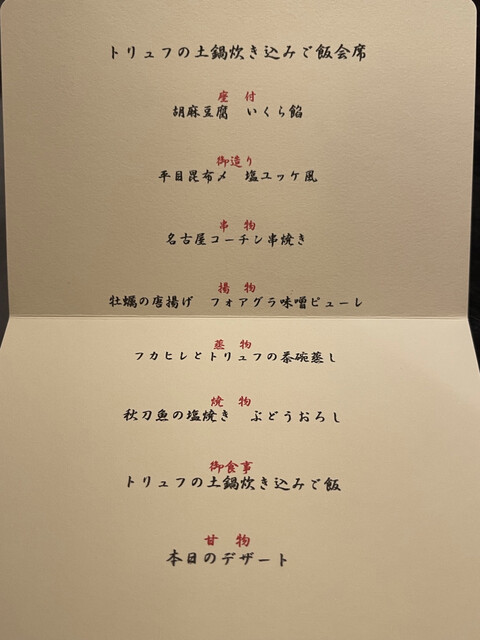 トリュフの土鍋炊き込みご飯会席
座 付
胡麻豆腐 いくら餡
御造り
平目昆布〆 塩ユッケ風
串 物
名古屋コーチン串焼き
揚 物
牡蠣の唐揚げ フォアグラ味噌ピューレ
蒸 物
フカヒレとトリュフの茶碗蒸し
焼 物
秋刀魚の塩焼き ぶどうおろし
御食事
トリュフの土鍋炊き込みご飯
甘 物
本日のデザート